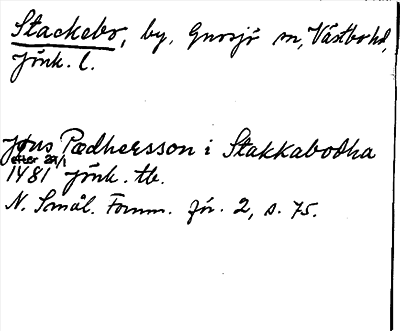 Stackebo, by, Gnosjö sn, Västbo hd,
Jönk. l.
Jøns Pædhersson i Stakkabodha
efter 29/1
1481 Jönk. tb.
N. Smål. Fornm. för. 2, s. 75.